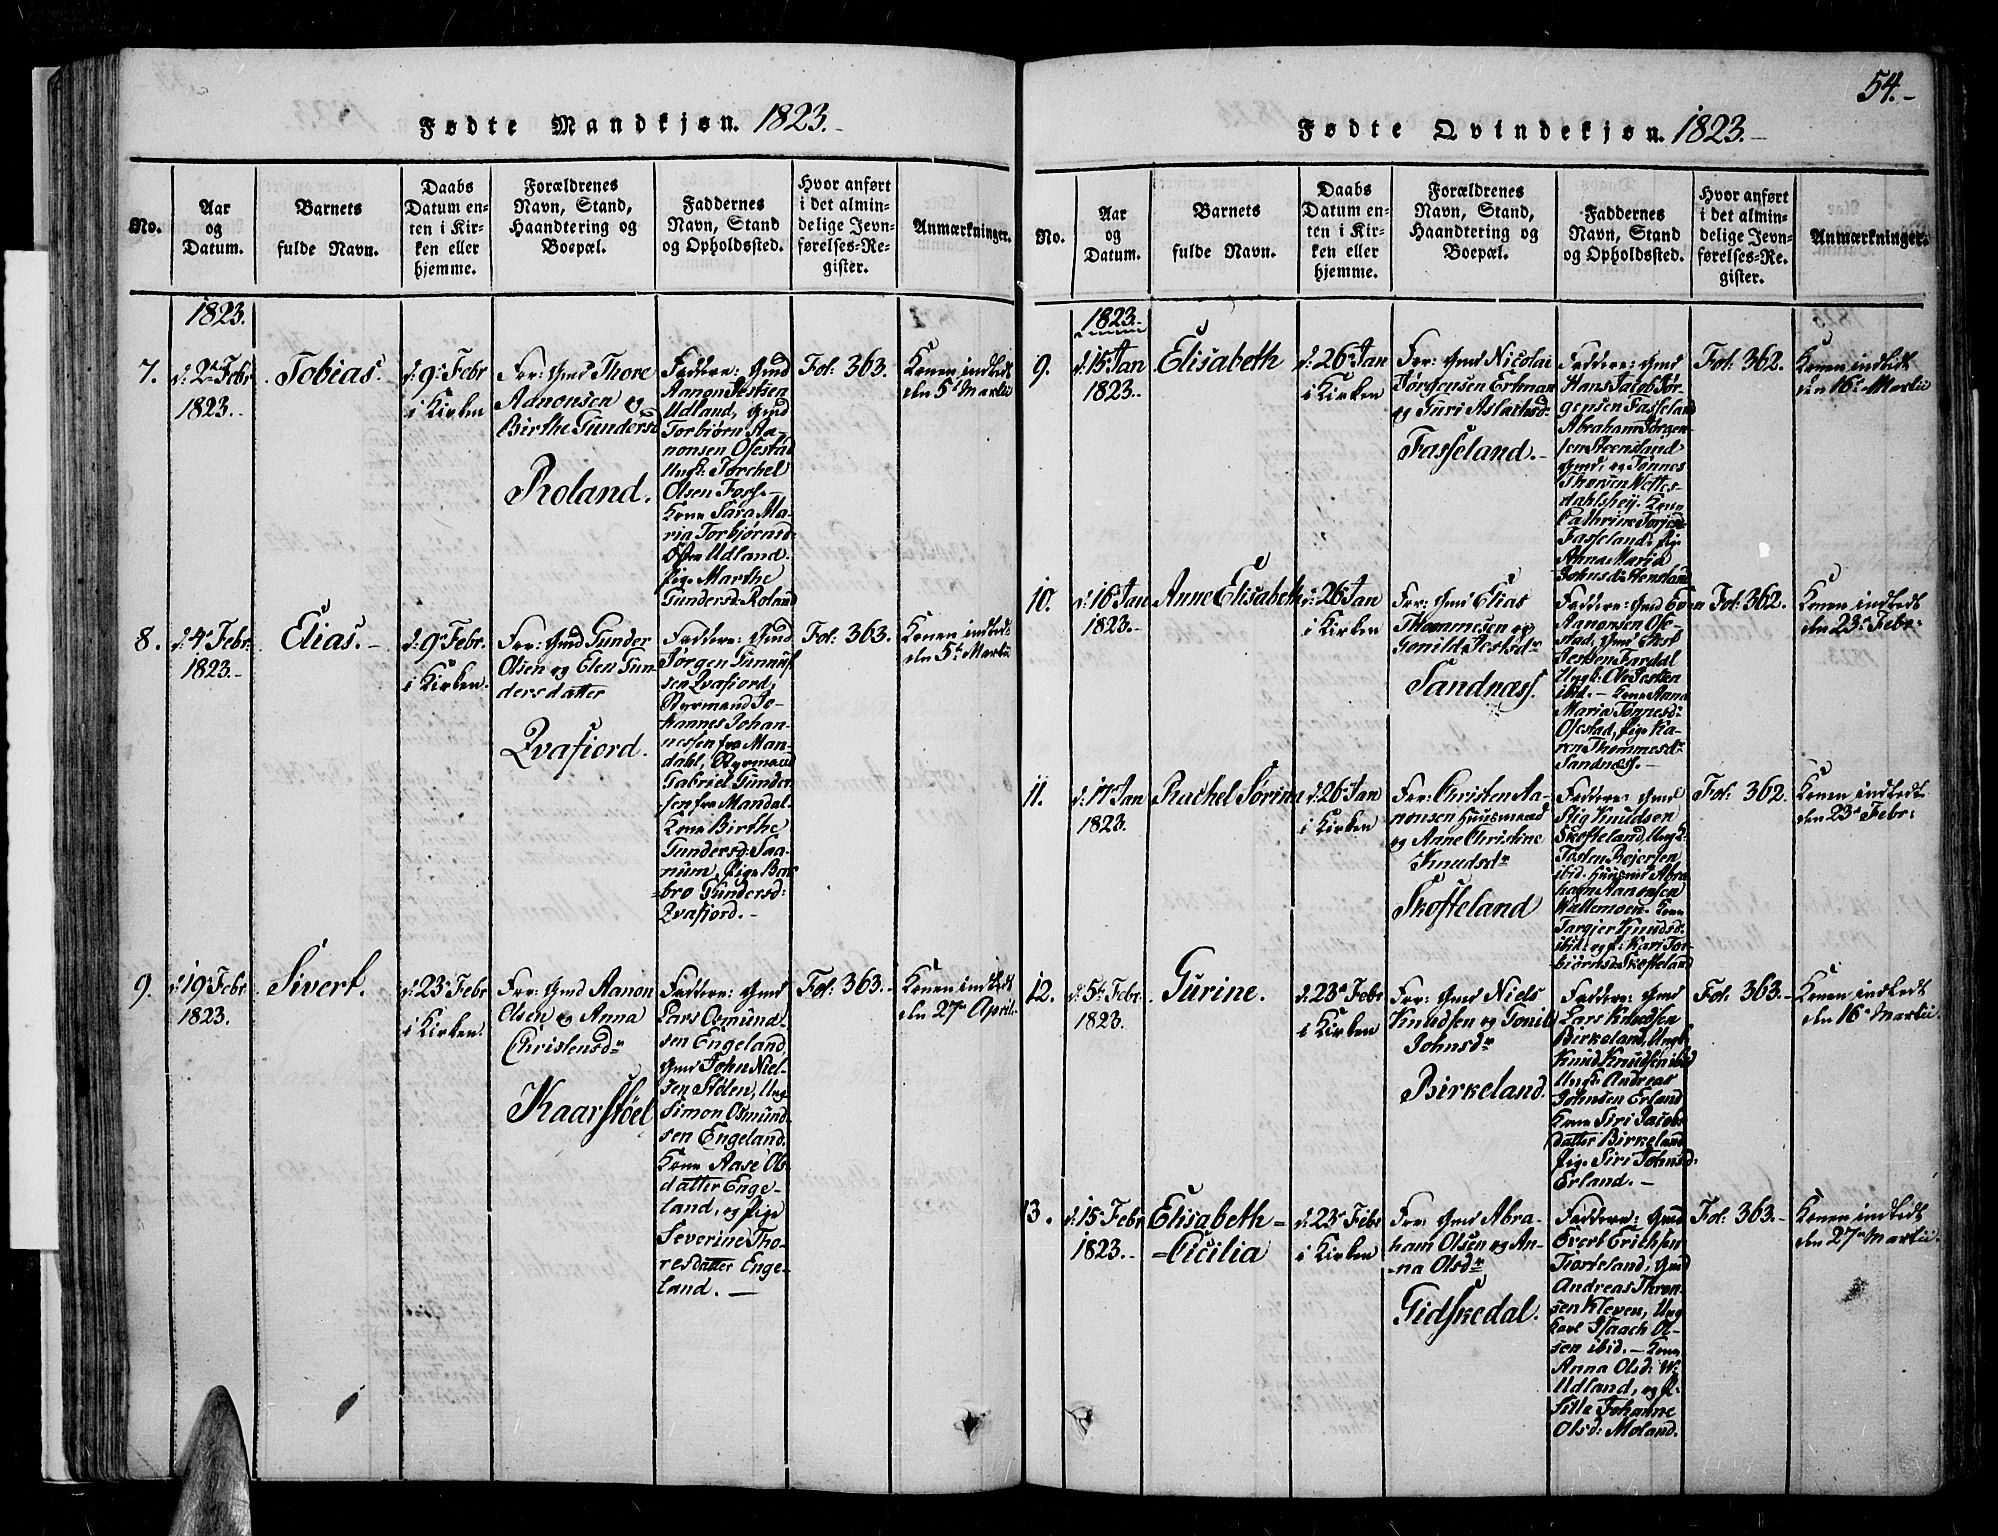 54.-
Fødte Mandkjøn. 1823.-
No.
Aar
og
Datum.
Barnets
fulde Navn.
Daabs
Datum en-
ten i Kir-
ken eller
hjemme.
Forældrenes
Navn, Stand,
Haandtering og
Boepæl.
Faddernes
Navn, Stand
og Opholdssted.
Hvor anført
i det almin-
delige Jevn-
førelses-Re-
gister.
Anmærkninger.
1823.
7.
d: 2de Febr
1823.-
Tobias.
d: 9de Febr
i Kirken
For: Gmd Thore
Aanonsen og
Birthe Gundersd
Roland.
Faddere: Gmd
Aanon Jestsen
Udland, Gmd
Torbiørn Aa-
nonsen Ofestad
Ungk: Torchel
Olsen Foss.-
Kone Sara Ma-
ria Torbjørnsd:
Udland.
Pige Marthe
Gundersd: Roland
Fol: 363.
Konen indledt
den 5te Martii
8.
d: 4de Febr.
1823.-
Elias.-
d: 9de Febr.
i Kirken.
For: Gmd Gunder
Olsen og Elen Gun-
dersdatter
Qvafiord.
Faddere: Gmd
Jørgen Gunnuf
sen Qvafiord,
Styrmand Jo-
hannes Johan-
nessen fra Man-
dahl, Styrmand
Gabriel Gunder-
sen fra Mandal.
Kone Birthe
Gundersd: Saa-
num, Pige Bar-
bro Gundersd:
Qvafiord.-
Fol: 363.
Konen indledt
den 5te Martii
9.
d: 19de Febr.
1823.
Sivert.
d: 23de Febr
i Kirken.
For: Gmd Aanon
Olsen og Anna
Christensdr
Kaarstøel
Faddere: Gmd
Lars Osmund-
sen Engeland,
Gmd John Niel-
sen Stølen, Ung
Simon Osmund
sen Engeland.
Kone Aase Ols-
datter Enge-
land, og Pige
Severine Tho-
resdatter Enge-
land. —
Fol: 363.-
Konen indledt
den 27de April
Fødte Qvindekjøn. 1823.-
No.
Aar
og
Datum.
Barnets
fulde Navn.
Daabs
Datum en-
ten i Kir-
ken eller
hjemme.
Forældrenes
Navn, Stand,
Haandtering og
Boepæl.
Faddernes
Navn, Stand
og Opholdssted.
Hvor anført
i det almin-
delige Jevn-
førelses-Re-
gister.
Anmærkninger.
1823.-
9.
d: 15de Jan
1823.-
Elisabeth
d: 26de Jan
i Kirken
For: Gmd Nicolai
Jørgensen Ertman
og Guri Aslachsd:
Fasseland.-
Faddere: Gmd
Hans Jacob Jør-
gensen Fasseland
Abraham Jørgen-
sen Steensland
Gmd, og Tønnes
Thorsen Vettes-
dahlsheij. Kone
Cathrine
Fasseland, Pige
Anna Maria
Johnsd: Stensland
Fol: 362.
Konen indledt
den 16de Martii
10.
d: 16de Jan
1823.-
Anne Elisabeth
d: 26de Jan
i Kirken
For: Gmd Elias
Thommesen og
Gonild Jestsdr
Sandnæss.
Faddere: Gmd Even
Aanonsen Ofe-
stad, Gmd Jest
Jestsen Fardal
Ungk: Ole Jestsen
ibid.- Kone Anna
Maria Tønnesd:
Ofestad, Pige Ka-
ren Thommesdr
Sandnæss.-
Fol: 362.
Konen indledt
den 23de Febr.
11.
d: 17de Jan
1823.
Rachel Sørina
d: 26de Jan
i Kirken
For: Christen Aa-
nonsen Huusmand
og Anne Christine
Knudsdr
Skofteland
Faddere: Gmd
Stig Knudsen
Skofteland, Ungk:
Tosten Reiersen,
ibid. Huusmd Abra-
ham Aanonsen
Vallemoen. Kone
Targier Knudsd:
ibid: og P: Kari Tor-
biørnsd: Skofteland
Fol: 362.
Konen indledt
den 23de Febr:
12.
d: 5te Febr.
1823.
Gurine.
d: 23de Febr
i Kirken
For: Gmd Niels
Knudsen og Gonild
Johnsdr
Birkeland.
Faddere: Gmd
Lars Knudsen
Birkeland, Ungk
Knud Knudsen ibid
Ungk: Andreas
Johnsen Erland
Kone Siri Jacobs
datter Birkeland
Pige Siri Johnsd:
Erland.-
Fol: 363.-
Konen indledt
den 16de Martii.
13.
d: 15 Febr
1823.-
Elisabeth=
=Cicilia
d: 23de Febr
i Kirken
For: Gmd Abra-
ham Olsen og An-
na Olsdr
Gidskedal.
Faddere: Gmd
Evert Erichsen
Tiorteland, Gmd
Andreas Thron-
sen Kleven, Ung
karl Isaach Ol-
sen ibid.- Kone
Anna Olsd: W:
Udland, og P:
Sille Johanne
Olsd: Moland.
Fol: 363.-
Konen indledt
den 27de Martii.